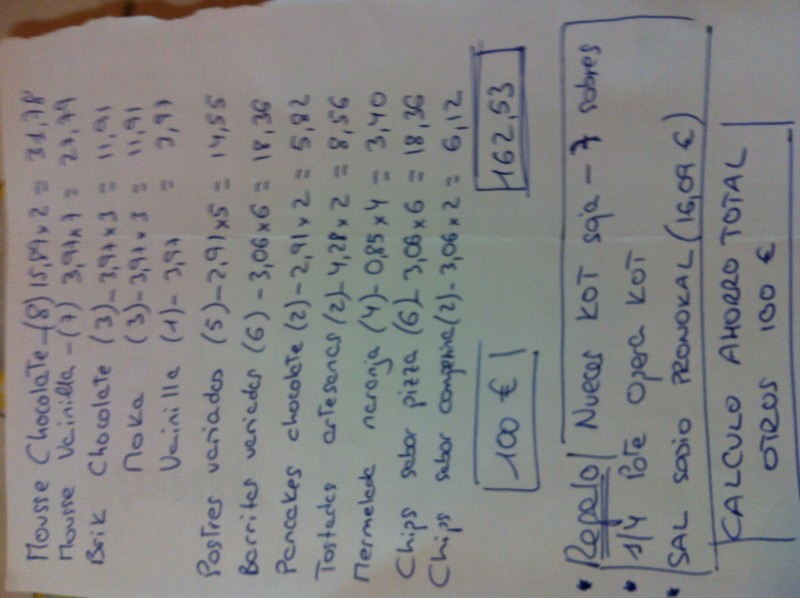 Mousse Chocolate-(8) 15,89 x 2 = 31,78
Mousse Vainilla - (7) 3,97 x 7 = 27,79
Brik Chocolate (3) - 3,97 x 3 = 11,91
Moka (3) - 3,97 x 3 = 11,91
Vainilla (1) - 3,97 = 3,97
Postres variados (5) - 2,91 x 5 = 14,55
Barritas variadas (6) - 3,06 x 6 = 18,36
Pancakes chocolate (2) - 2,91 x 2 = 5,82
Tostadas artesanas (2) - 4,28 x 2 = 8,56
Mermelada naranja (4) - 0,85 x 4 = 3,40
Chips sabor pizza (6) - 3,06 x 6 = 18,36
Chips sabor campesina (2) - 3,06 x 2 = 6,12
100 € 162,53
• Regalo / Nueces KOT soja - 7 sobres
• 1/4 Pote Opera KOT
• SAL SODIO PRONOKAL (16,09 €)
CALCULO AHORRO TOTAL
OTROS 100 €